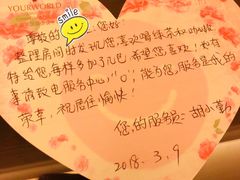 YOURWORLD
smile
尊敬的 您好
整理房间时发现您喜欢喝绿茶和
特给您每样多加了几包,希望您喜欢!如有
事请致电服务中心"0",能为您服务是我的
荣幸,祝居住愉快!
您的服务员:胡小勤
2018.3.9